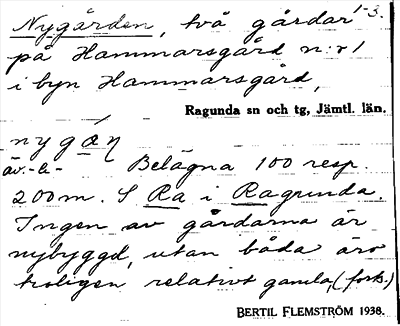 Nygården, två gårdar 1-3.
på Hammarsgård n:r 1
i byn Hammarsgård,
Ragunda sn och tg, Jämtl. län.
nygáŋ
äv. -a- Belägna 100 resp.
200 m. S Ra i Ragunda.
Ingen av gårdarna är
nybyggd, utan båda äro
troligen relativt gamla, (fork.)
BERTIL FLEMSTRÖM 1938.